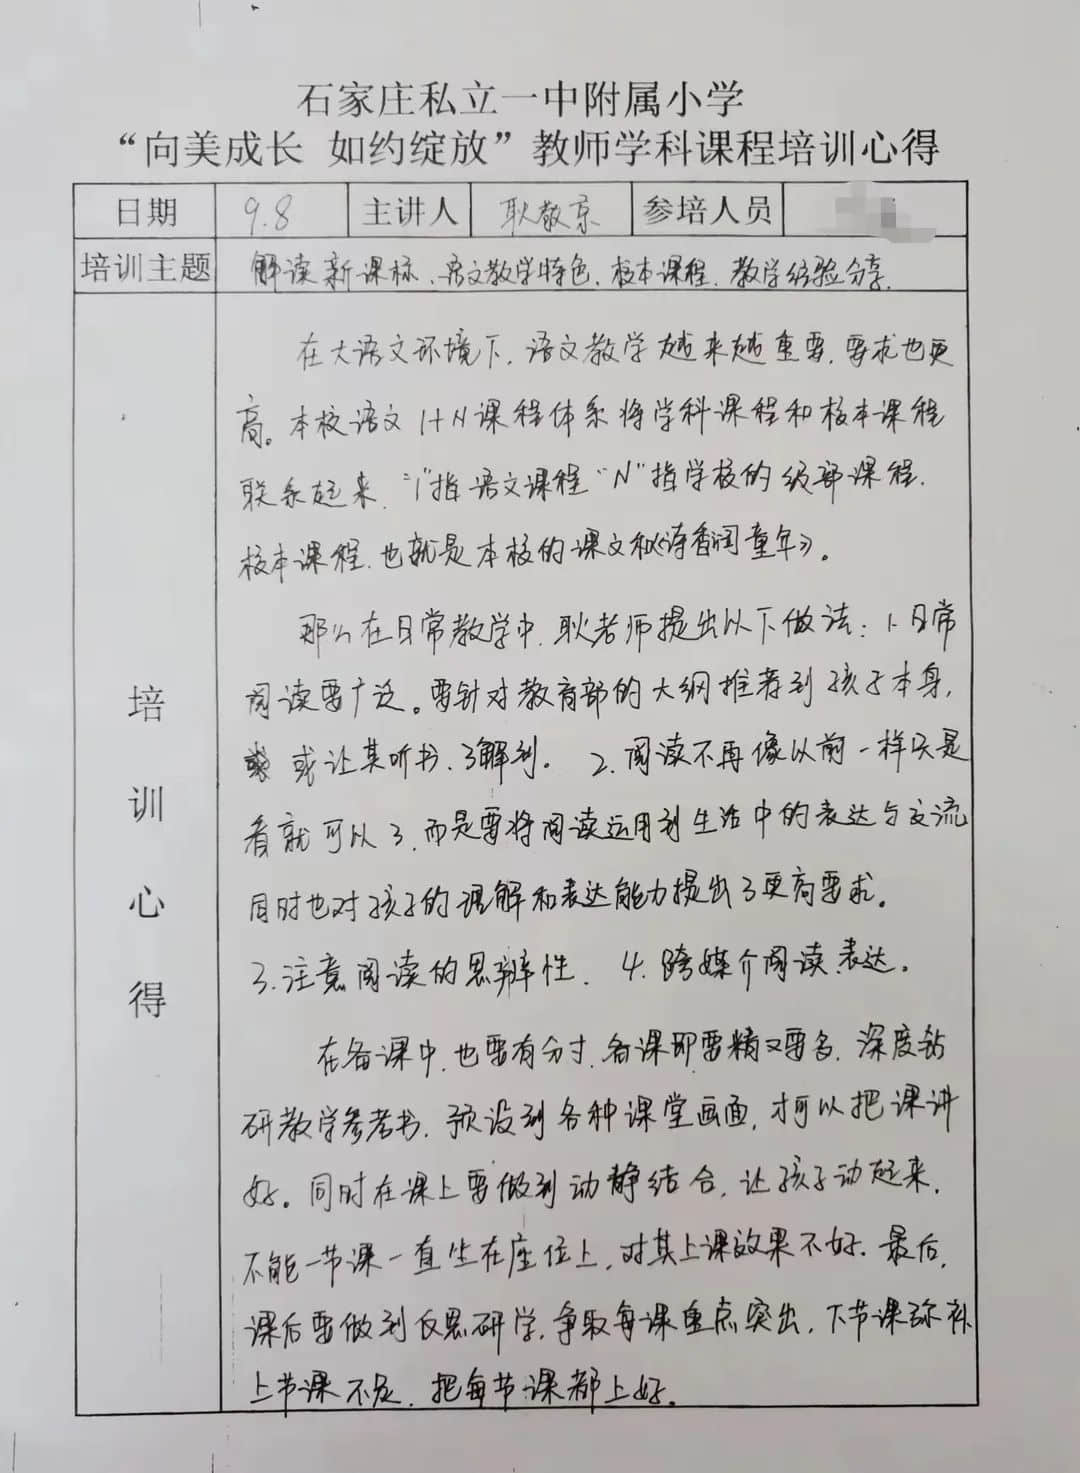 石家庄私立一中附属小学
“向美成长 如约绽放”教师学科课程培训心得
日期 9.8 主讲人 耿敬京 参培人员
培训主题 解读新课标、语文教学特色、校本课程、教学经验分享.
培训心得
在大语文环境下,语文教学越来越重要,要求也更
高。本校语文1+N课程体系将学科课程和校本课程
联系起来,“1”指语文课程“N”指学校的级部课程.
校本课程,也就是本校的课文和《诗香润童年》。
那么在日常教学中,耿老师提出以下做法:1.日常
阅读要广泛。要针对教育部的大纲推荐到孩子本身,
或让其听书、了解到。 2.阅读不再像以前一样只是
看就可以了,而是要将阅读运用到生活中的表达与交流
同时也对孩子的理解和表达能力提出了更高要求。
3.注意阅读的思辨性. 4.跨媒介阅读、表达。
在备课中,也要有分寸,备课即要精又要名,深度钻
研教学参考书,预设到各种课堂画面,才可以把课讲
好。同时在课上要做到动静结合,让孩子动起来,
不能一节课一直坐在座位上,对其上课效果不好.最后,
课后要做到反思研学,争取每课重点突出,下节课弥补
上节课不足,把每节课都上好。